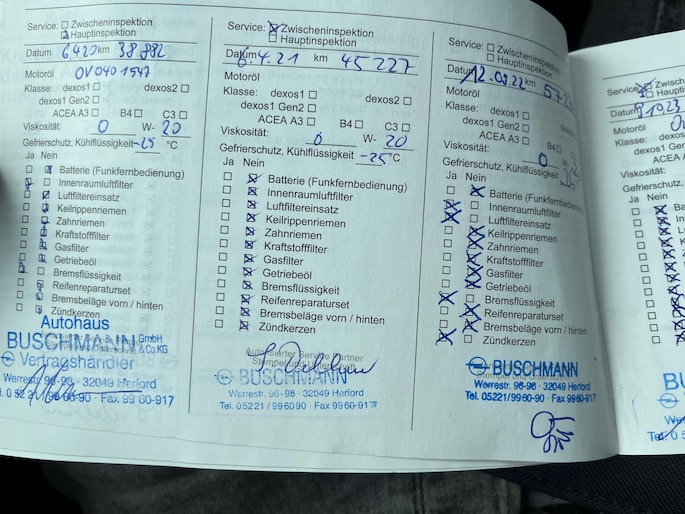 Service: Zwischeninspektion
Hauptinspektion
Datum 6.4.20 km 38 882
Motoröl OV040 1547
Klasse: dexos1 dexos2
dexos1 Gen2
ACEA A3 B4 C3
Viskosität: 0 W- 20
Gefrierschutz, Kühlflüssigkeit -25 °C
Ja Nein
Batterie (Funkfernbedienung)
Innenraumluftfilter
Luftfiltereinsatz
Keilrippenriemen
Zahnriemen
Kraftstofffilter
Gasfilter
Getriebeöl
Bremsflüssigkeit
Reifenreparaturset
Bremsbeläge vorn / hinten
Zündkerzen
Autohaus
BUSCHMANN GmbH & Co.KG
Vertragshändler
Werrestr. 96-98 · 32049 Herford
Fax 99 60-917
Service: Zwischeninspektion
Hauptinspektion
Datum 6.4.21 km 45 227
Motoröl
Klasse: dexos1 dexos2
dexos1 Gen2
ACEA A3 B4 C3
Viskosität: 0 W- 20
Gefrierschutz, Kühlflüssigkeit -25 °C
Ja Nein
Batterie (Funkfernbedienung)
Innenraumluftfilter
Luftfiltereinsatz
Keilrippenriemen
Zahnriemen
Kraftstofffilter
Gasfilter
Getriebeöl
Bremsflüssigkeit
Reifenreparaturset
Bremsbeläge vorn / hinten
Zündkerzen
Autorisierter Service Partner
Stempel und
BUSCHMANN
Werrestr. 96-98 · 32049 Herford
Tel. 05221/99 60 90 · Fax 99 60-917
Service: Zwischeninspektion
Hauptinspektion
Datum 12.09.22 km
Motoröl
Klasse: dexos1 dexos2
dexos1 Gen2
ACEA A3 B4
Viskosität: 0 W-
Gefrierschutz, Kühlflüssigkeit
Ja Nein
Batterie (Funkfernbedienung)
Innenraumluftfilter
Luftfiltereinsatz
Keilrippenriemen
Zahnriemen
Kraftstofffilter
Gasfilter
Getriebeöl
Bremsflüssigkeit
Reifenreparaturset
Bremsbeläge vorn / hinten
Zündkerzen
BUSCHMANN
Werrestr. 96-98 · 32049 Herford
Tel. 05221/99 60 90 · Fax 99 60-917
Service:
Datum
Motoröl
Klasse: dexos1
dexos1
ACEA A
Viskosität:
Gefrierschutz,
Ja Nein